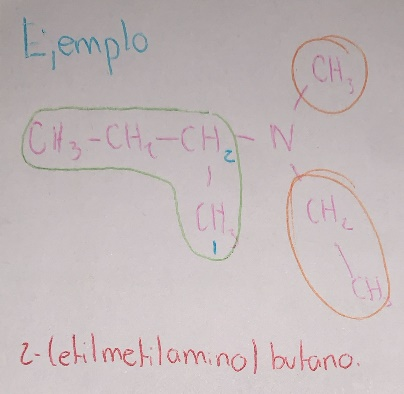 Ejemplo
CH3
CH3-CH2-CH-N
2
CH3
1
CH2
CH3
2-(etilmetilamino) butano.